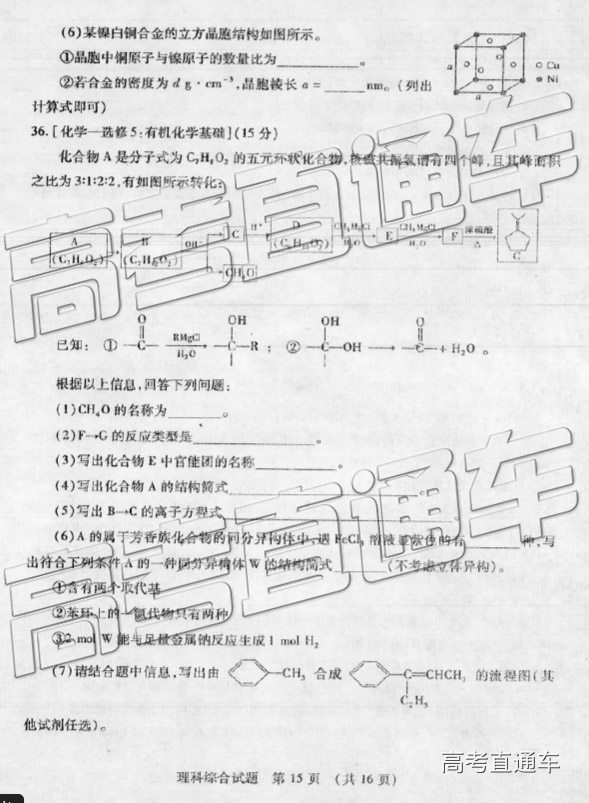 (6)某镍白铜合金的立方晶胞结构如图所示。
①晶胞中铜原子与镍原子的数量比为______。
②若合金的密度为 d g·cm⁻³,晶胞棱长 a = ______nm。(列出
计算式即可)
a
a
○ Cu
Ni
36.[化学—选修5:有机化学基础](15分)
化合物 A 是分子式为 的五元环状化合物,核磁共振氢谱有四个峰,且其峰面积
之比为 3:1:2:2,有如图所示转化:
A
B
OH⁻
C
H⁺
D
CH₃MgCl
H₂O
E
CH₃MgCl
H₂O
F
浓硫酸
△
G
CH₄O
已知: ① O —C— RMgCl H₂O OH —C—R ; ② OH —C—OH → O —C— + H₂O 。
根据以上信息,回答下列问题:
(1)CH₄O 的名称为______。
(2)F→G 的反应类型是______。
(3)写出化合物 E 中官能团的名称______。
(4)写出化合物 A 的结构简式______
(5)写出 B→C 的离子方程式______.
(6)A 的属于芳香族化合物的同分异构体中,遇 FeCl₃ 溶液显紫色的有______种,写
出符合下列条件 A 的一种同分异构体 W 的结构简式______(不考虑立体异构)。
①含有两个取代基
②苯环上的一氯代物只有两种
③2 mol W 能与足量金属钠反应生成 1 mol H₂
(7)请结合题中信息,写出由 —CH₃ 合成 —C=CHCH₃ 的流程图(其
C₂H₅
他试剂任选)。
高考直通车
高考直通车
高考直通车
理科综合试题 第 15 页 (共 16 页)